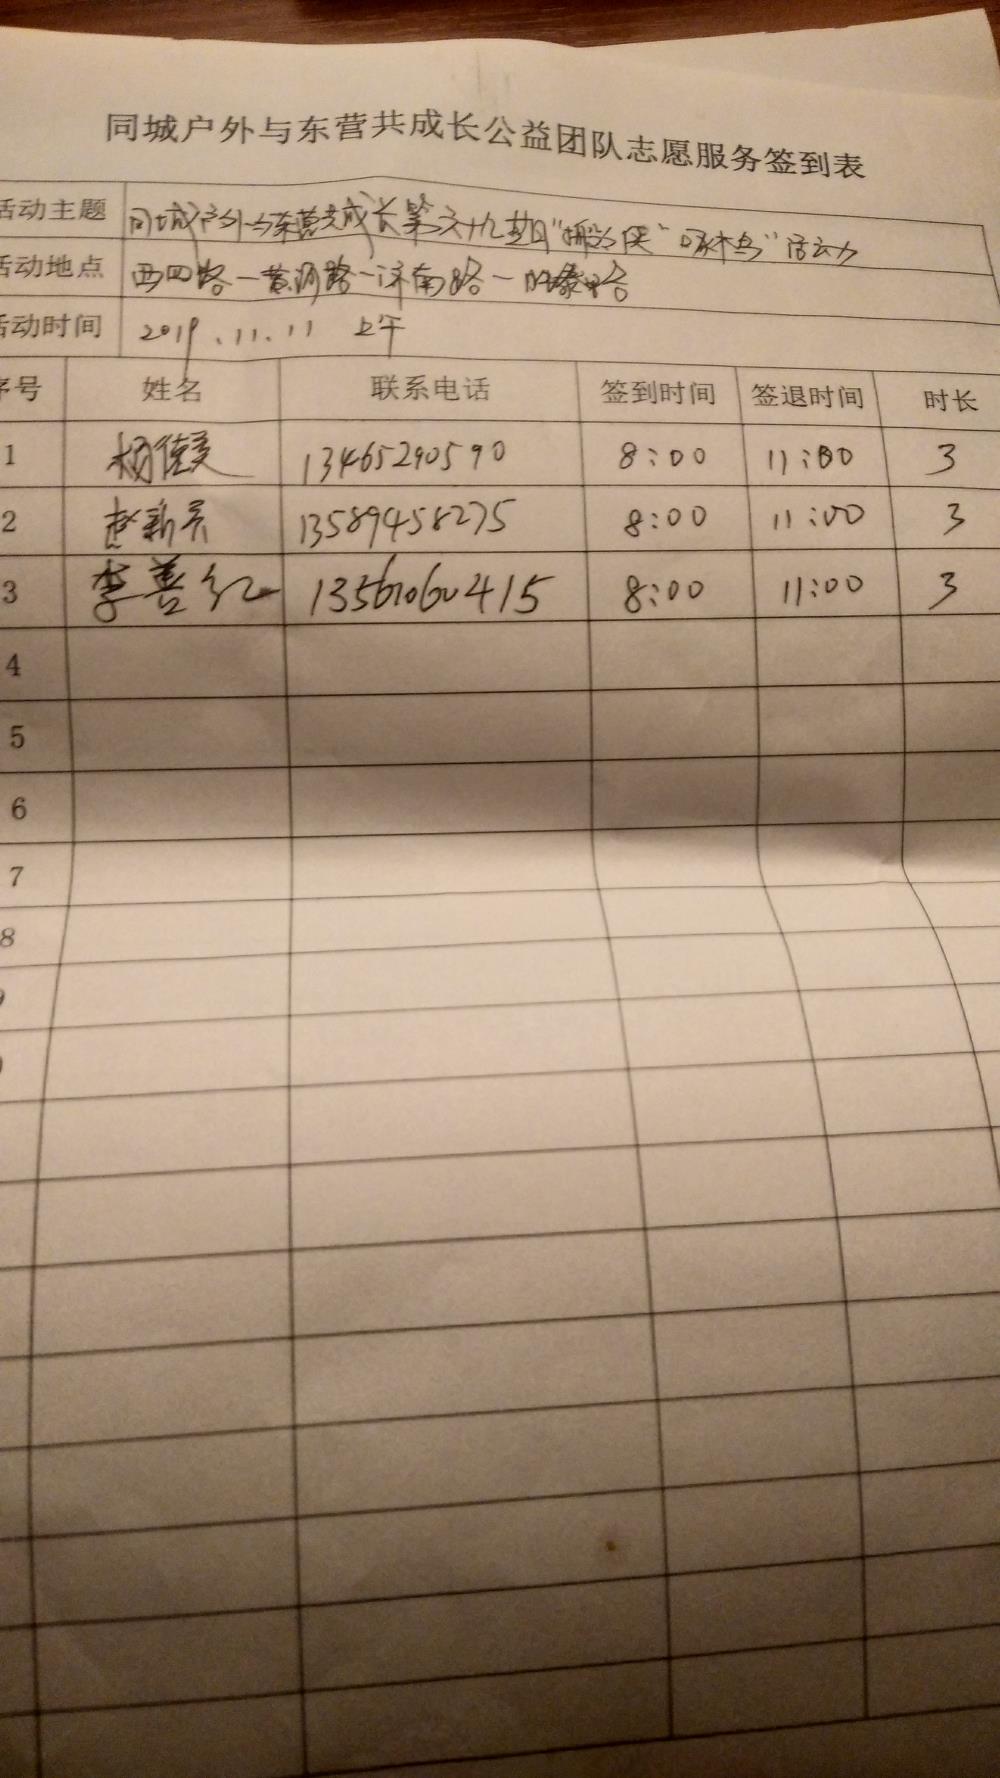 同城户外与东营共成长公益团队志愿服务签到表
活动主题 同城户外与东营共成长第六十九期"挪为侠""啄木鸟"活动
活动地点 西四路一黄河路一济南路一
活动时间 2019.11.11 上午
序号 姓名 联系电话 签到时间 签退时间 时长
1 杨佳美 13465290590 8:00 11:00 3
2 赵新吴 13589458275 8:00 11:00 3
3 李善红 13561060415 8:00 11:00 3
4
5
6
7
8
9